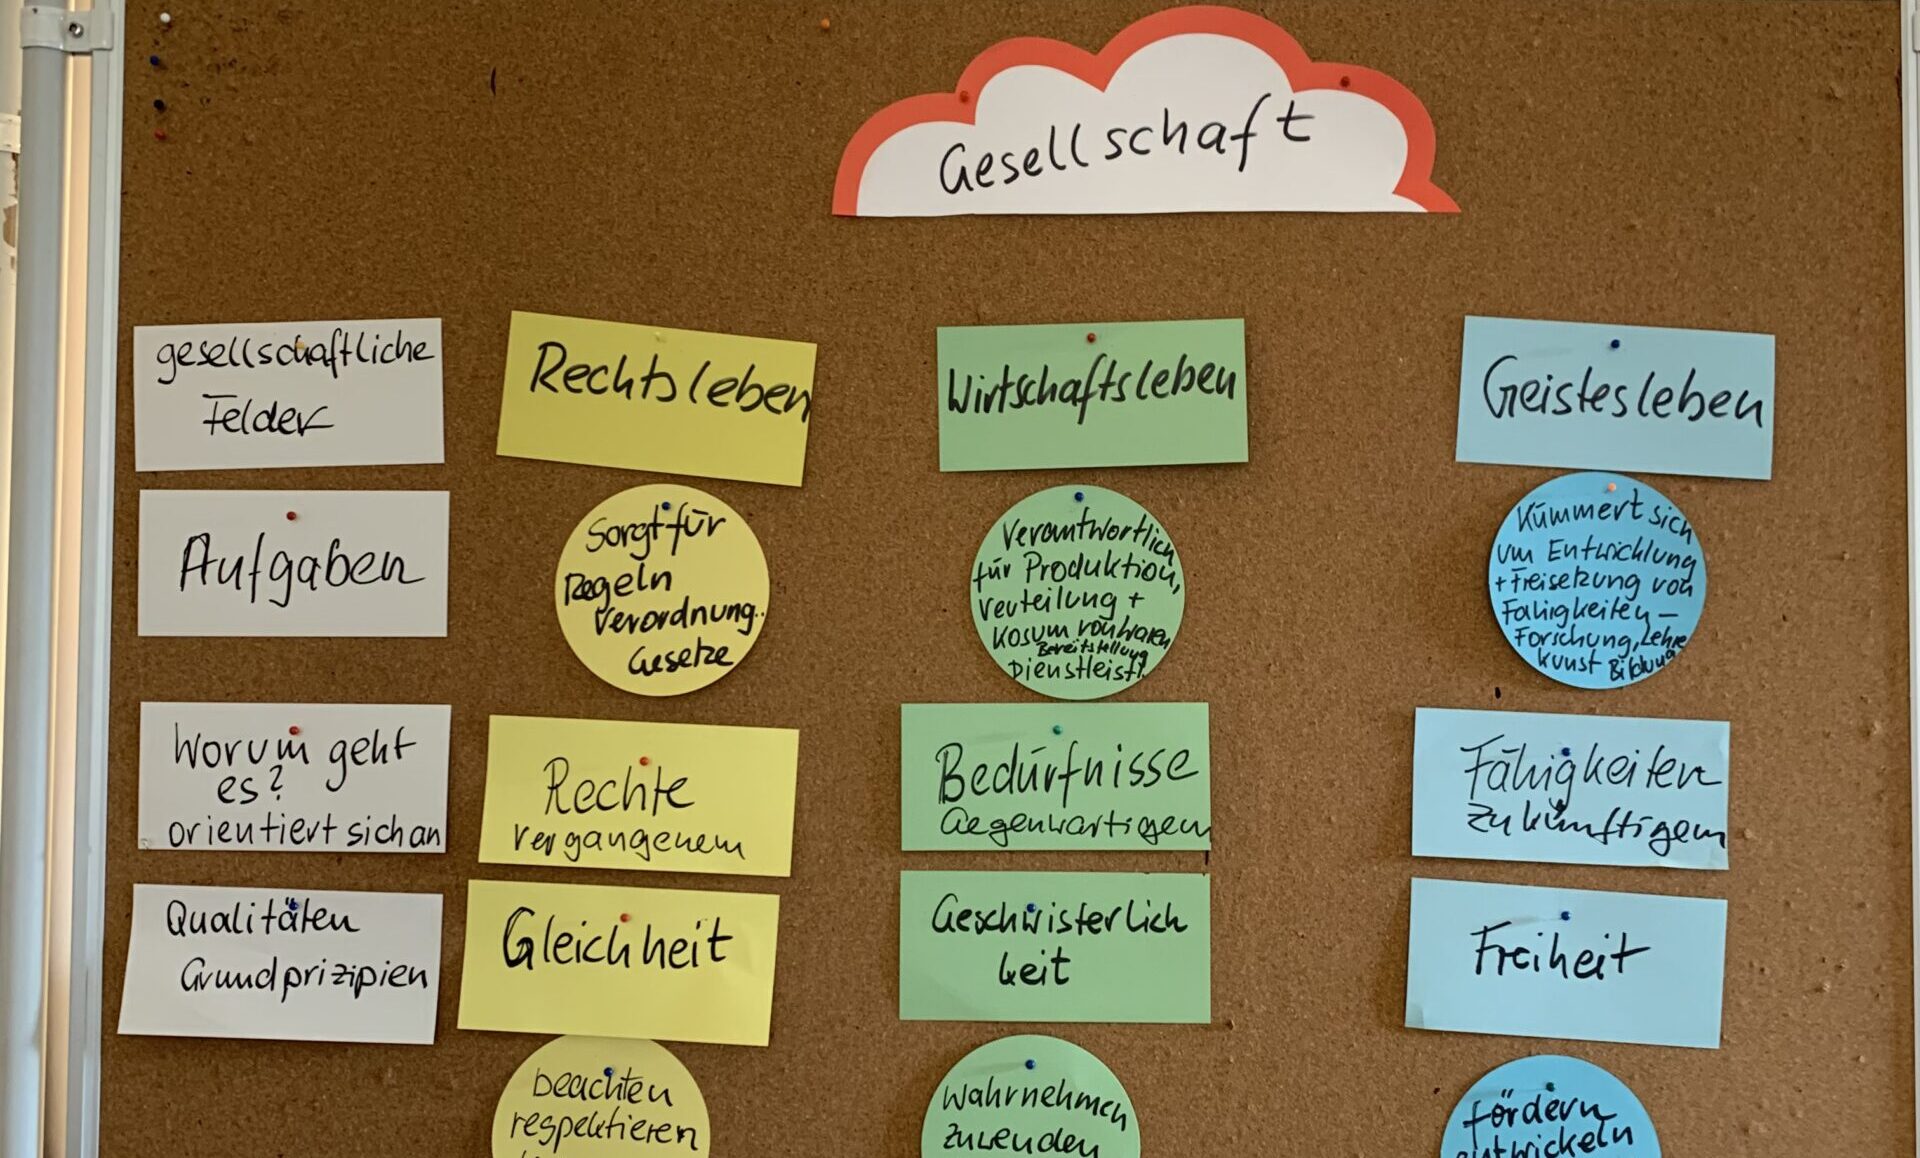 Gesellschaft
gesellschaftliche
Felder
Rechtsleben
Wirtschaftsleben
Geistesleben
Aufgaben
Sorgt für
Regeln
Verordnung..
Gesetze
Verantwortlich
für Produktion,
Verteilung +
Kosum von Waren
Bereitstellung
Dienstleist.
Kümmert sich
um Entwicklung
+ Freisetzung von
Fähigkeiten –
Forschung, Lehre
Kunst Bildung
Worum geht
es?
orientiert sich an
Rechte
Vergangenem
Bedürfnisse
Gegenwärtigem
Fähigkeiten
Zukünftigem
Qualitäten
Grundprizipien
Gleichheit
Geschwisterlich
keit
Freiheit
beachten
respektieren
Wahrnehmen
zuwenden
fördern
entwickeln